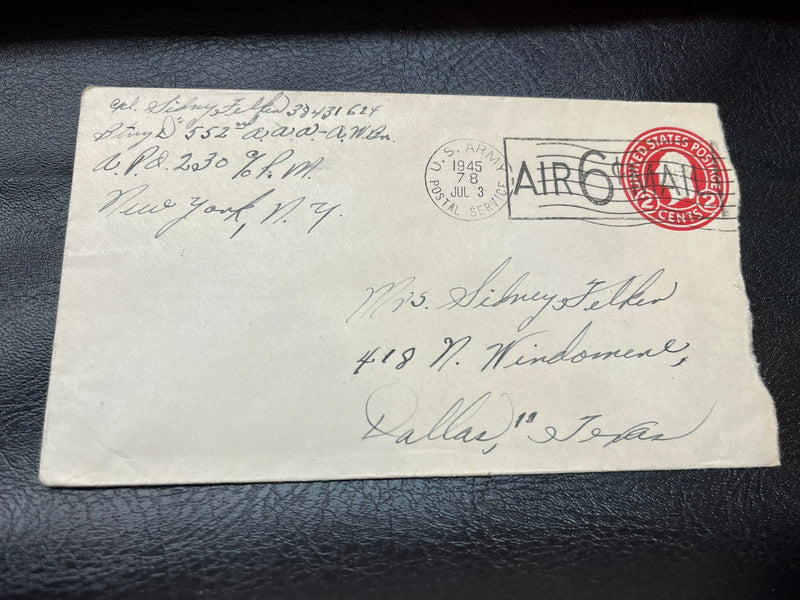 Cpl. Sidney Felken 38431624
Btry "D" 552nd a.a.a. - A.W.Bn.
A.P.O. 230 % P.M.
New York, N.Y.
U.S. ARMY
1945
7 8
JUL 3
POSTAL SERVICE
AIR 6¢ MAIL
UNITED STATES POSTAGE
2 CENTS 2
Mrs. Sidney Felken
418 N. Windomere,
Dallas, 11 Texas